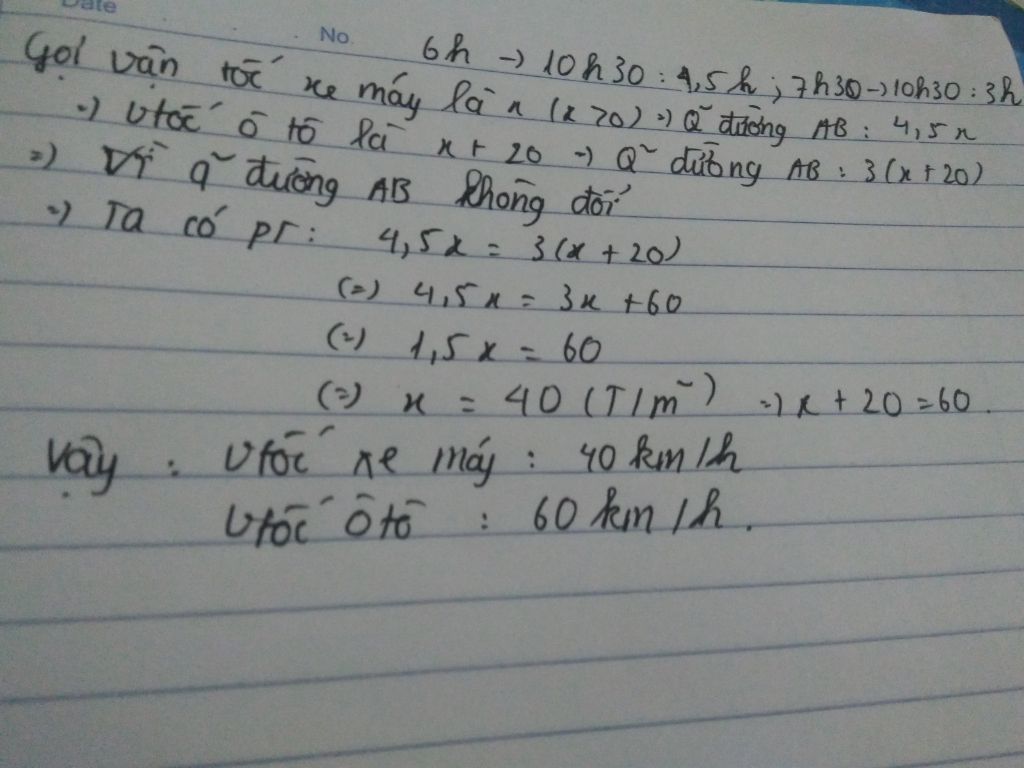 Date
No.
6h -> 10h30 : 4,5h ; 7h30 -> 10h30 : 3h
Gọi vận tốc xe máy là x (x > 0) => Q~ đường AB : 4,5x
=> Vtốc ô tô là x + 20 => Q~ đường AB : 3(x + 20)
=> Vì q~ đường AB không đổi
=> Ta có pt : 4,5x = 3(x + 20)
(=) 4,5x = 3x + 60
(=) 1,5x = 60
(=) x = 40 (T/m~) => x + 20 = 60.
Vậy : Vtốc xe máy : 40 km/h
Vtốc ô tô : 60 km/h.